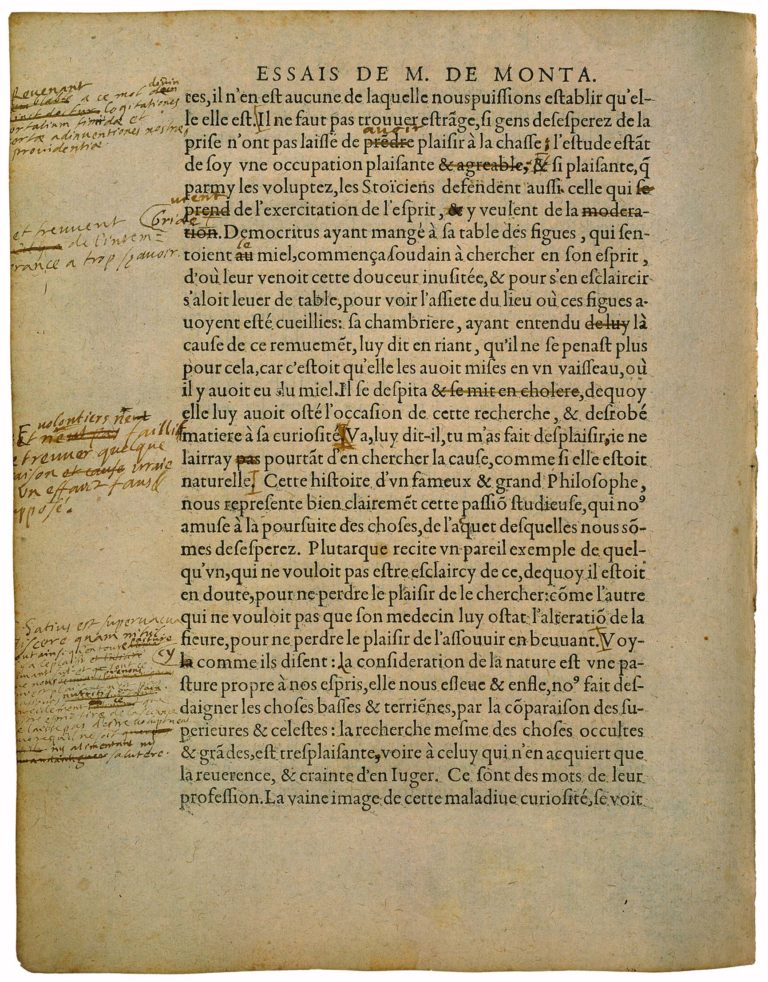 ESSAIS DE M. DE MONTA.
tes, il n'en est aucune de laquelle nous puissions establir qu'el-
le elle est. Il ne faut pas trouuer estrãge, si gens desesperez de la
auoir
prise n'ont pas laissé de prẽdre plaisir à la chasse; l'estude estãt
de soy vne occupation plaisante & agreable, & si plaisante, q̃
parmy les voluptez, les Stoïciens defendent aussi celle qui se
prend de l'exercitation de l'esprit, & y veulent de la modera-
tion. Democritus ayant mangé à sa table des figues, qui sen-
le
toient au miel, commença soudain à chercher en son esprit,
d'où leur venoit cette douceur inusitée, & pour s'en esclaircir
s'aloit leuer de table, pour voir l'assiete du lieu où ces figues a-
uoyent esté cueillies: sa chambriere, ayant entendu de luy la
cause de ce remuemẽt, luy dit en riant, qu'il ne se penast plus
pour cela, car c'estoit qu'elle les auoit mises en vn vaisseau, où
il y auoit eu du miel. Il se despita & se mit en cholere, dequoy
elle luy auoit osté l'occasion de cette recherche, & desrobé
matiere à sa curiosité. Va, luy dit-il, tu m'as fait desplaisir, ie ne
lairray pas pourtãt d'en chercher la cause, comme si elle estoit
naturelle. Cette histoire d'vn fameux & grand Philosophe,
nous represente bien clairemẽt cette passiõ studieuse, qui noꝰ
amuse à la poursuite des choses, de l'aquet desquelles nous sõ-
mes desesperez. Plutarque recite vn pareil exemple de quel-
qu'vn, qui ne vouloit pas estre esclaircy de ce, dequoy il estoit
en doute, pour ne perdre le plaisir de le chercher: cõme l'autre
qui ne vouloit pas que son medecin luy ostat l'alteratiõ de la
fieure, pour ne perdre le plaisir de l'assouuir en beuuant. Voy-
la comme ils disent: la consideration de la nature est vne pa-
sture propre à nos espris, elle nous esleue & enfle, noꝰ fait des-
daigner les choses basses & terriẽnes, par la cõparaison des su-
perieures & celestes: la recherche mesme des choses occultes
& grãdes, est tresplaisante, voire à celuy qui n'en acquiert que
la reuerence, & crainte d'en Iuger. Ce sont des mots de leur
profession. La vaine image de cette maladiue curiosité, se voit
a ce mot
cogitationes
timidæ et
adinuentiones nostræ
prouidentiæ
et treuuent
de l'intem=
rance a trop sçauoir.
volontiers
treuuer quelque
un effaict faus
Satius est superuacua
discere quam nihil